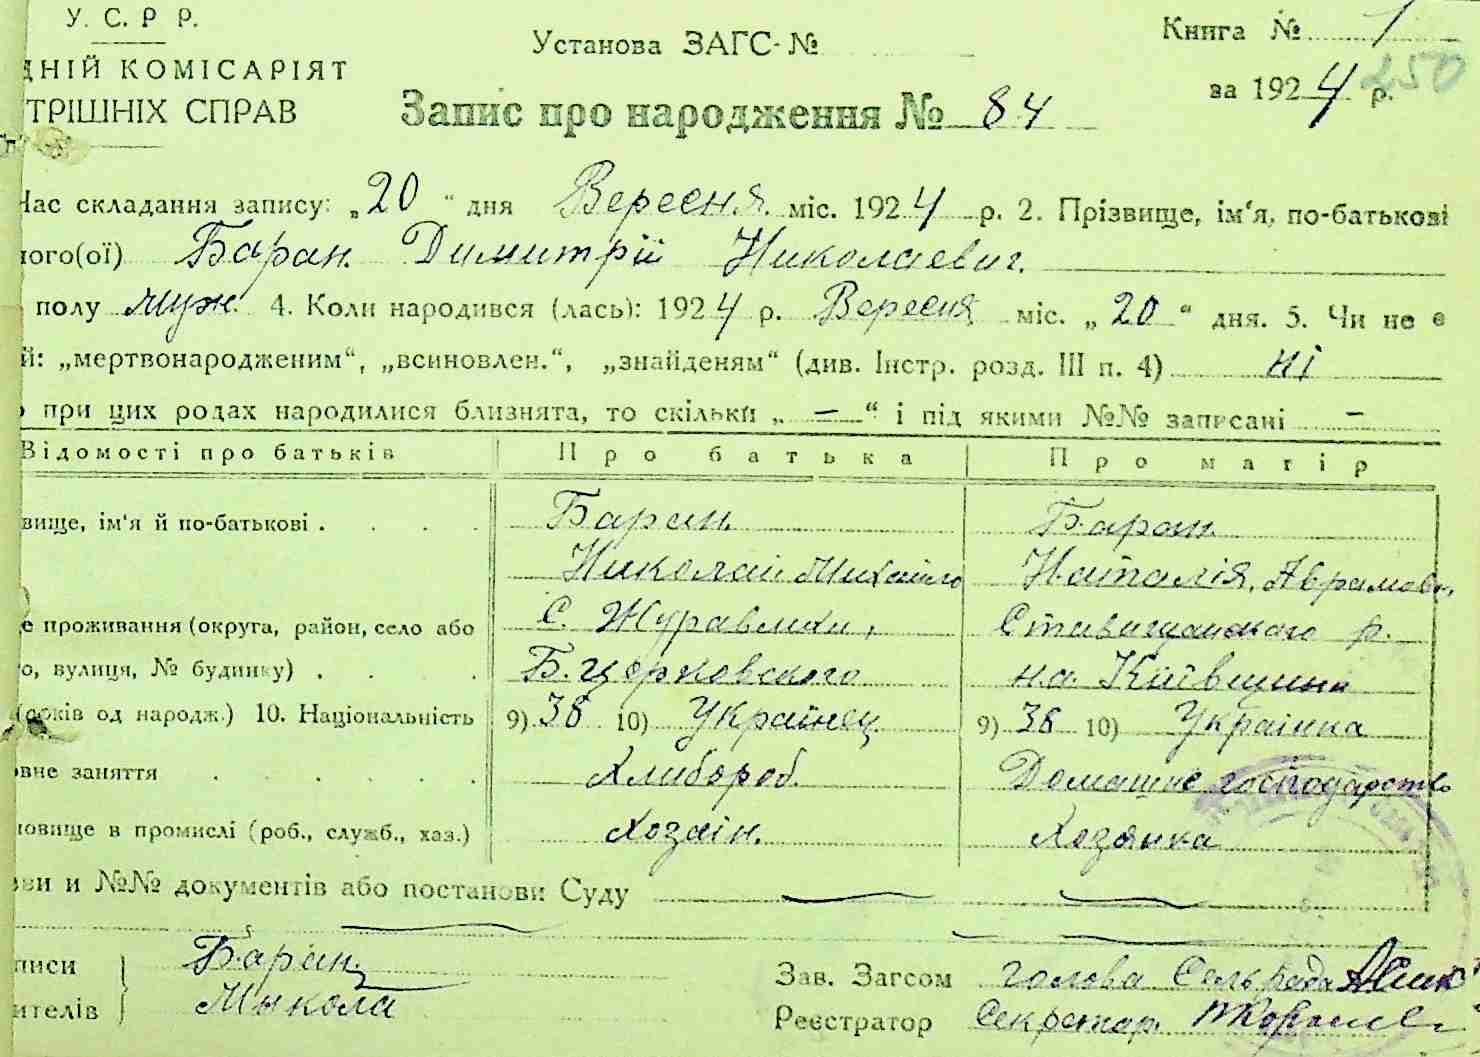 У. С. Р Р.
Установа ЗАГС-№
Книга № 1
ДНІЙ КОМІСАРІЯТ
250
за 1924 р.
ТРІШНІХ СПРАВ
Запис про народження № 84
Час складання запису: „20“ дня Вересня міс. 1924 р. 2. Прізвище, ім‘я, по-батькові
ного(ої) Баран Димитрій Николаевич.
полу муж. 4. Коли народився (лась): 1924 р. Вересня міс. „20“ дня. 5. Чи не є
й: „мертвонародженим“, „всиновлен.“, „знайденям“ (див. Інстр. розд. III п. 4) ні
о при цих родах народилися близнята, то скільки „—“ і під якими №№ записані —
Відомості про батьків Про батька Про матір
вище, ім‘я й по-батькові . . . . Баран Баран
Николай Михайло Наталія Аврамов.
е проживання (округа, район, село або С. Журавлихи, Ставищанского р.
о, вулиця, № будинку) . . . Б. Церковского на Київщині
(років од народж.) 10. Національність 9) 38 10) Українец 9) 38 10) Українка
овне заняття . . . . . . Хлибороб. Домашнє господарство
новище в промислі (роб., служб., хаз.) Хозаін. Хозянка
ви и №№ документів або постанови Суду
писи Баран Зав. Загсом голова Сельрада
ителів Мыкола Реєстратор Секретар